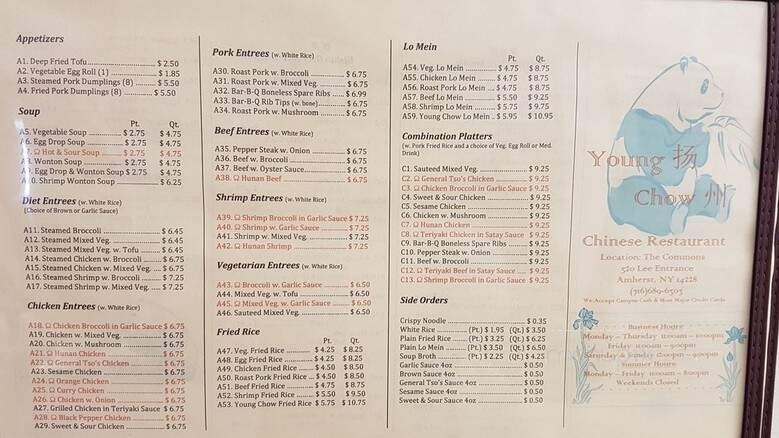 Appetizers
A1. Deep Fried Tofu ........ $ 2.50
A2. Vegetable Egg Roll (1) ........ $ 1.85
A3. Steamed Pork Dumplings (8) ..... $ 5.50
A4. Fried Pork Dumplings (8) ........ $ 5.50
Soup
Pt. Qt.
A5. Vegetable Soup ........ $ 2.75 $ 4.75
A6. Egg Drop Soup ........ $ 2.75 $ 4.75
Ω Hot & Sour Soup ........ $ 2.75 $ 4.75
Wonton Soup ........ $ 2.75 $ 4.75
Egg Drop & Wonton Soup $ 2.75 $ 4.75
Shrimp Wonton Soup ........ $ 6.25
Diet Entrees (w. White Rice)
(Choice of Brown or Garlic Sauce)
A11. Steamed Broccoli ........ $ 6.45
A12. Steamed Mixed Veg. ........ $ 6.45
A13. Steamed Mixed Veg. w. Tofu ..... $ 6.45
A14. Steamed Chicken w. Broccoli ..... $ 6.75
A15. Steamed Chicken w. Mixed Veg. .... $ 6.75
A16. Steamed Shrimp w. Broccoli ..... $ 7.25
A17. Steamed Shrimp w. Mixed Veg. .... $ 7.25
Chicken Entrees (w. White Rice)
A18. Ω Chicken Broccoli in Garlic Sauce $ 6.75
A19. Chicken w. Mixed Veg. ........ $ 6.75
A20. Chicken w. Mushroom ........ $ 6.75
A21. Ω Hunan Chicken ........ $ 6.75
A22. Ω General Tso's Chicken ........ $ 6.75
A23. Sesame Chicken ........ $ 6.75
A24. Ω Orange Chicken ........ $ 6.75
A25. Ω Curry Chicken ........ $ 6.75
A26. Ω Chicken w. Onion ........ $ 6.75
A27. Grilled Chicken in Teriyaki Sauce $ 6.75
A28. Ω Black Pepper Chicken ........ $ 6.75
A29. Sweet & Sour Chicken ........ $ 6.75
Pork Entrees (w. White Rice)
A30. Roast Pork w. Broccoli ........ $ 6.75
A31. Roast Pork w. Mixed Veg. ........ $ 6.75
A32. Bar-B-Q Boneless Spare Ribs ..... $ 6.99
A33. Bar-B-Q Rib Tips (w. bone) ........ $ 6.75
A34. Roast Pork w. Mushroom ........ $ 6.75
Beef Entrees (w. White Rice)
A35. Pepper Steak w. Onion ........ $ 6.75
A36. Beef w. Broccoli ........ $ 6.75
A37. Beef w. Oyster Sauce ........ $ 6.75
A38. Ω Hunan Beef ........ $ 6.75
Shrimp Entrees (w. White Rice)
A39. Ω Shrimp Broccoli in Garlic Sauce $ 7.25
A40. Ω Shrimp w. Garlic Sauce ........ $ 7.25
A41. Shrimp w. Mixed Veg. ........ $ 7.25
A42. Ω Hunan Shrimp ........ $ 7.25
Vegetarian Entrees (w. White Rice)
A43. Ω Broccoli w. Garlic Sauce ........ $ 6.50
A44. Mixed Veg. w. Tofu ........ $ 6.50
A45. Ω Mixed Veg. w. Garlic Sauce ..... $ 6.50
A46. Sauteed Mixed Veg. ........ $ 6.50
Fried Rice
Pt. Qt.
A47. Veg. Fried Rice ........ $ 4.25 $ 8.25
A48. Egg Fried Rice ........ $ 4.25 $ 8.25
A49. Chicken Fried Rice ..... $ 4.50 $ 8.50
A50. Roast Pork Fried Rice .. $ 4.50 $ 8.50
A51. Beef Fried Rice ........ $ 4.75 $ 8.75
A52. Shrimp Fried Rice ..... $ 5.50 $ 9.50
A53. Young Chow Fried Rice $ 5.75 $ 10.75
Lo Mein
Pt. Qt.
A54. Veg. Lo Mein ........ $ 4.75 $ 8.75
A55. Chicken Lo Mein ..... $ 4.75 $ 8.75
A56. Roast Pork Lo Mein .... $ 4.75 $ 8.75
A57. Beef Lo Mein ........ $ 5.50 $ 9.25
A58. Shrimp Lo Mein ........ $ 5.75 $ 9.75
A59. Young Chow Lo Mein .. $ 5.95 $ 10.95
Combination Platters
(w. Pork Fried Rice and a choice of Veg. Egg Roll or Med.
Drink)
C1. Sauteed Mixed Veg. ........ $ 9.25
C2. Ω General Tso's Chicken ........ $ 9.25
C3. Ω Chicken Broccoli in Garlic Sauce $ 9.25
C4. Sweet & Sour Chicken ........ $ 9.25
C5. Sesame Chicken ........ $ 9.25
C6. Chicken w. Mushroom ........ $ 9.25
C7. Ω Hunan Chicken ........ $ 9.25
C8. Ω Teriyaki Chicken in Satay Sauce ... $ 9.25
C9. Bar-B-Q Boneless Spare Ribs ..... $ 9.25
C10. Pepper Steak w. Onion ........ $ 9.25
C11. Beef w. Broccoli ........ $ 9.25
C12. Ω Teriyaki Beef in Satay Sauce .... $ 9.25
C13. Ω Shrimp Broccoli in Garlic Sauce $ 9.25
Side Orders
Crispy Noodle ........ $ 0.35
White Rice ........ (Pt.) $ 1.95 (Qt.) $ 3.50
Plain Fried Rice ........ (Pt.) $ 3.25 (Qt.) $ 6.25
Plain Lo Mein ........ (Pt.) $ 3.50 (Qt.) $ 6.50
Soup Broth ........ (Pt.) $ 2.25 (Qt.) $ 4.25
Garlic Sauce 4oz ........ $ 0.50
Brown Sauce 4oz ........ $ 0.50
General Tso's Sauce 4oz ........ $ 0.50
Sesame Sauce 4oz ........ $ 0.50
Sweet & Sour Sauce 4oz ........ $ 0.50
Young 扬
Chow 州
Chinese Restaurant
Location: The Commons
520 Lee Entrance
Amherst, NY 14228
(716)689-6505
We Accept Campus Cash & Most Major Credit Cards
Business Hours
Monday – Thursday 11:00am – 10:00pm
Friday 11:00am – 9:00pm
Saturday & Sunday 12:00pm – 9:00pm
Summer Hours
Monday – Friday 11:00am – 8:00pm
Weekends Closed